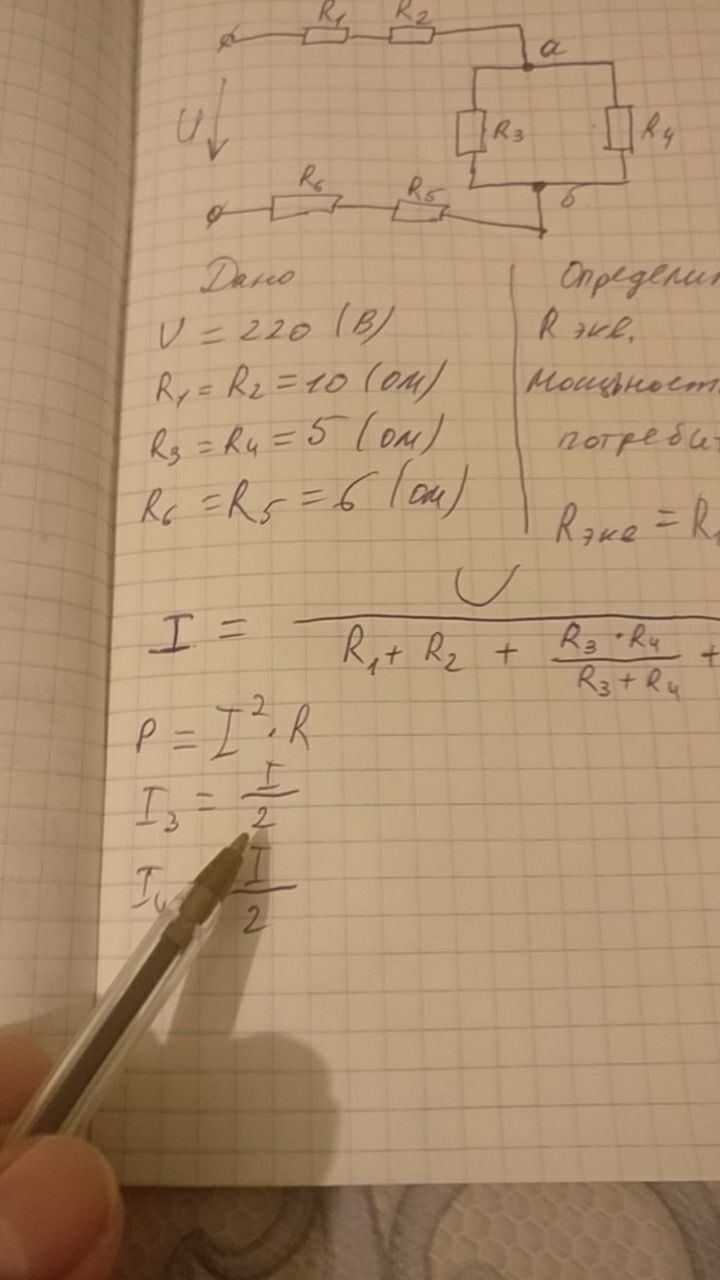 R₁ R₂
a
U R₃ R₄
R₆ R₅ б
Дано
U = 220 (В)
R₁ = R₂ = 10 (ом)
R₃ = R₄ = 5 (ом)
R₆ = R₅ = 6 (ом)
Определи
R экв.
мощьност
потреби
Rэкв = R₁
I = U / (R₁ + R₂ + (R₃ · R₄)/(R₃ + R₄) +
P = I² · R
I₃ = I/2
I₄ I/2